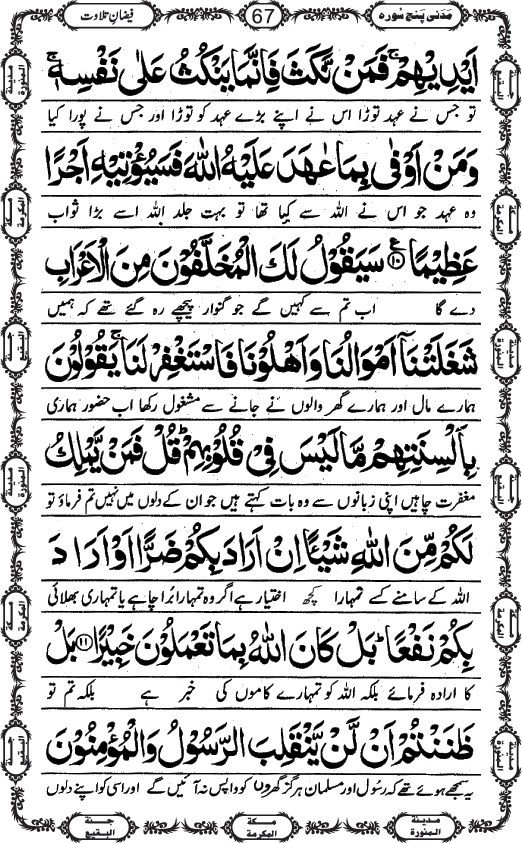 مَدَنی پَنج سُورہ 67 فیضانِ تلاوت
اَیْدِیْهِمْ ۚ فَمَنْ نَّكَثَ فَاِنَّمَا یَنْكُثُ عَلٰى نَفْسِهٖ ۚ
تو جس نے عہد توڑا اس نے اپنے بڑے عہد کو توڑا اور جس نے پورا کیا
وَ مَنْ اَوْفٰى بِمَا عٰهَدَ عَلَیْهُ اللّٰهَ فَسَیُؤْتِیْهِ اَجْرًا
وہ عہد جو اس نے اللہ سے کیا تھا تو بہت جلد اللہ اسے بڑا ثواب
عَظِیْمًا ﴿۱۰﴾ سَیَقُوْلُ لَكَ الْمُخَلَّفُوْنَ مِنَ الْاَعْرَابِ
دے گا اب تم سے کہیں گے جو گنوار پیچھے رہ گئے تھے کہ ہمیں
شَغَلَتْنَاۤ اَمْوَالُنَا وَ اَهْلُوْنَا فَاسْتَغْفِرْ لَنَا ۚ یَقُوْلُوْنَ
ہمارے مال اور ہمارے گھر والوں نے جانے سے مشغول رکھا اب حضور ہماری
بِاَلْسِنَتِهِمْ مَّا لَیْسَ فِیْ قُلُوْبِهِمْ ؕ قُلْ فَمَنْ یَّمْلِكُ
مغفرت چاہیں اپنی زبانوں سے وہ بات کہتے ہیں جو ان کے دلوں میں نہیں تم فرماؤ تو
لَكُمْ مِّنَ اللّٰهِ شَیْــٴًـا اِنْ اَرَادَ بِكُمْ ضَرًّا اَوْ اَرَادَ
اللہ کے سامنے کسے تمہارا کچھ اختیار ہے اگر وہ تمہارا بُرا چاہے یا تمہاری بھلائی
بِكُمْ نَفْعًا ؕ بَلْ كَانَ اللّٰهُ بِمَا تَعْمَلُوْنَ خَبِیْرًا ﴿۱۱﴾ بَلْ
کا ارادہ فرمائے بلکہ اللہ کو تمہارے کاموں کی خبر ہے بلکہ تم تو
ظَنَنْتُمْ اَنْ لَّنْ یَّنْقَلِبَ الرَّسُوْلُ وَ الْمُؤْمِنُوْنَ
یہ سمجھے ہوئے تھے کہ رسول اور مسلمان ہرگز گھروں کو واپس نہ آئیں گے اور اسی کو اپنے دلوں
مدینة المنورة مكة المكرمة جنة البقيع